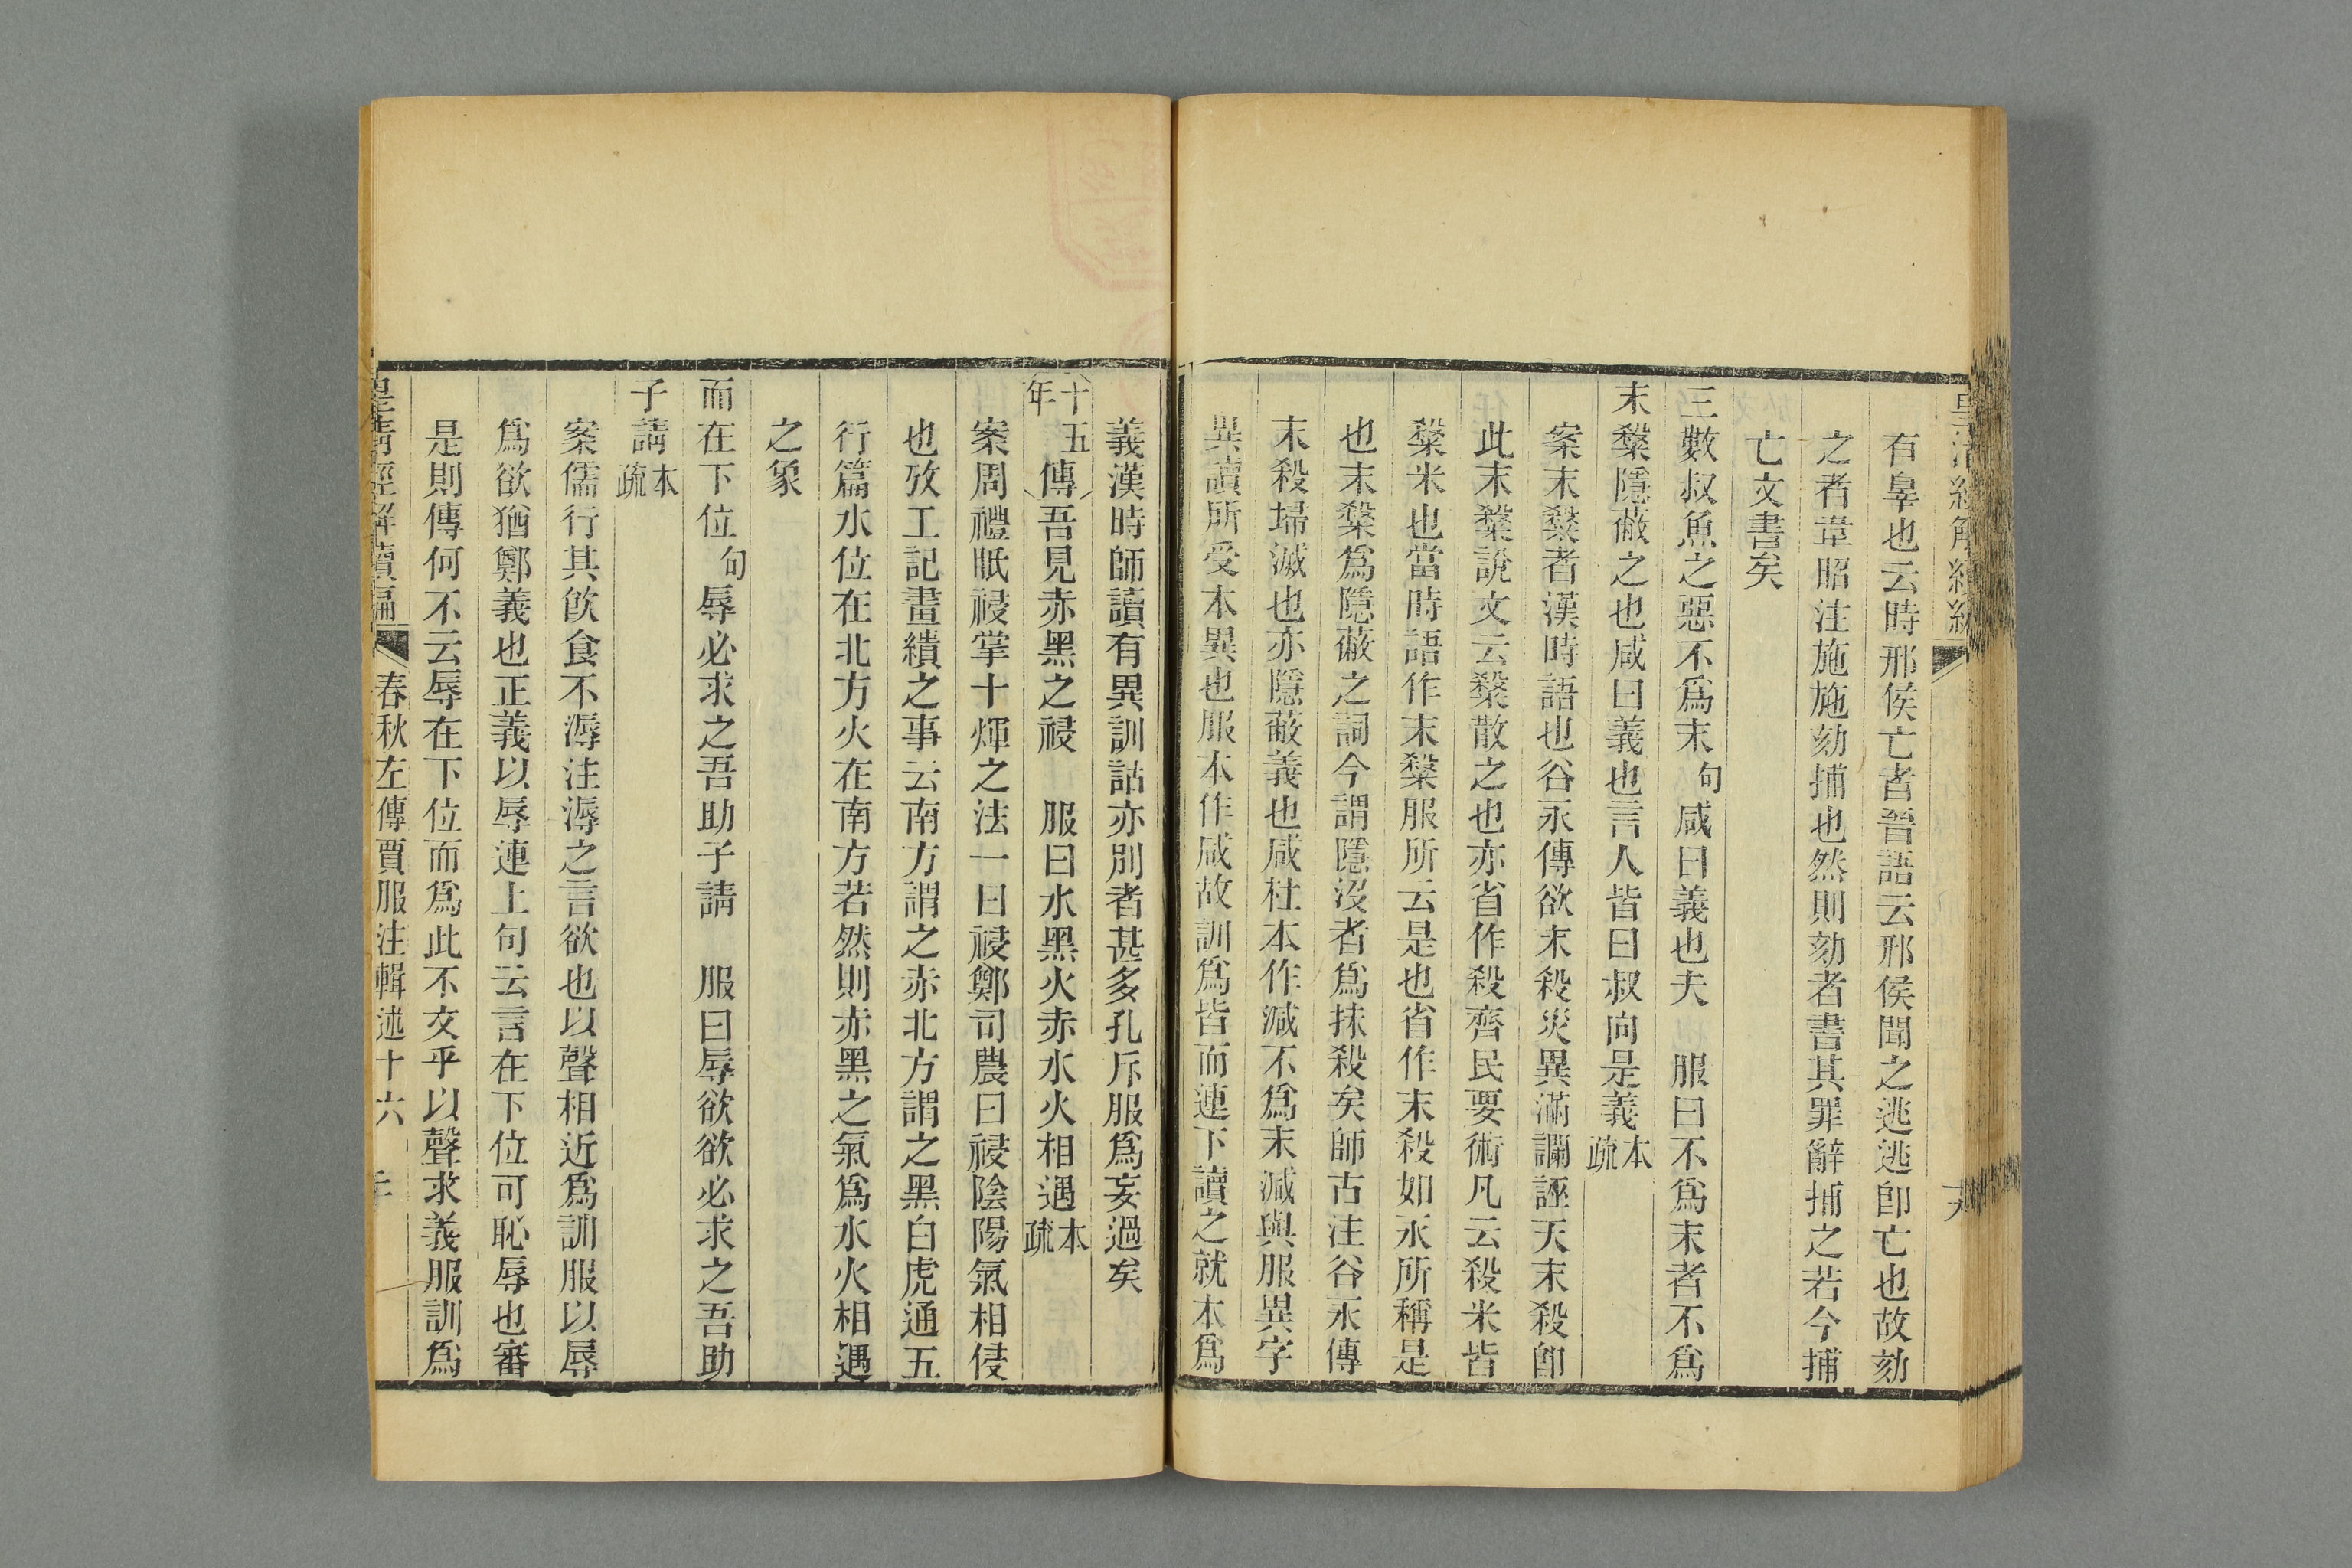 有辠也云時邢侯亡者晉語云邢侯聞之逃逃卽亡也故劾
之者韋昭注施施劾捕也然則劾者書其罪辭捕之若今捕
亡文書矣
三數叔魚之惡不爲末句咸曰義也夫　服曰不爲末者不爲
末㯲隱蔽之也咸曰義也言人皆曰叔向是義本疏
案末㯲者漢時語也谷永傳欲末殺災異滿讕誣天末殺卽
此末㯲說文云㯲散之也亦省作殺齊民要術凡云殺米皆
㯲米也當時語作末㯲服所云是也省作末殺如永所稱是
也末㯲爲隱蔽之詞今謂隱沒者爲抹殺矣師古注谷永傳
末殺埽滅也亦隱蔽義也咸杜本作減不爲末減與服異字
異讀所受本異也服本作咸故訓爲皆而連下讀之就本爲
義漢時師讀有異訓詁亦別者甚多孔斥服爲妄過矣
十五年傳吾見赤黑之祲　服曰水黑火赤水火相遇本疏
案周禮眂祲掌十煇之法一曰祲鄭司農曰祲陰陽氣相侵
也攷工記畫繢之事云南方謂之赤北方謂之黑白虎通五
行篇水位在北方火在南方若然則赤黑之氣爲水火相遇
之象
而在下位句辱必求之吾助子請　服曰辱欲欲必求之吾助
子請本疏
案儒行其飮食不溽注溽之言欲也以聲相近爲訓服以辱
爲欲猶鄭義也正義以辱連上句云言在下位可恥辱也審
是則傳何不云辱在下位而爲此不文乎以聲求義服訓爲
皇淸經解續編　春秋左傳賈服注輯述十六